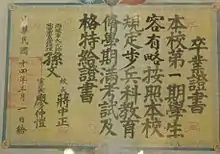 卒業證書
本校第一期學生
容有略按照本校
規定步兵科教育
修學期滿考試及
格特給證書
孫文
校長 蔣中正
廖仲愷
中華民國十四年三月一日給